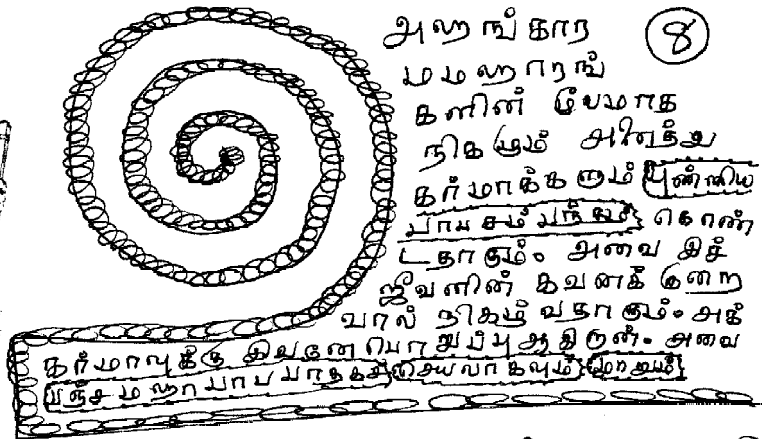 அஹங்கார ⑧
மமஹாரங்
களின் மூலமாக
நிகழும் அனைத்து
கர்மாக்களும் புண்ணிய
பாபசம்பந்தம் கொண்
டதாகும். அவை இச்
ஜீவனின் கவனக் குறை
வால் நிகழ்வதாகும். அக்
கர்மாவுக்கு இவனே பொறுப்பு ஆகிறான். அவை
பஞ்சமஹாபாபபாதகச் செயலாகவும் மற்றும்